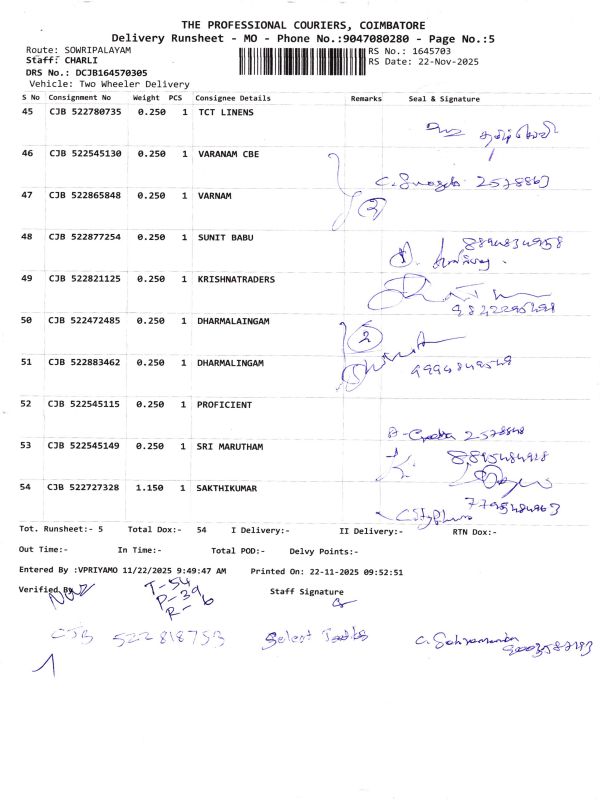 THE PROFESSIONAL COURIERS, COIMBATORE
Delivery Runsheet - MO - Phone No.:9047080280 - Page No.:5
Route: SOWRIPALAYAM
RS No.: 1645703
Staff: CHARLI
RS Date: 22-Nov-2025
DRS No.: DCJB164570305
Vehicle: Two Wheeler Delivery
S No Consignment No Weight PCS Consignee Details Remarks Seal & Signature
45 CJB 522780735 0.250 1 TCT LINENS
46 CJB 522545130 0.250 1 VARANAM CBE
2578863
47 CJB 522865848 0.250 1 VARNAM
2
48 CJB 522877254 0.250 1 SUNIT BABU
8894834958
49 CJB 522821125 0.250 1 KRISHNATRADERS
50 CJB 522472485 0.250 1 DHARMALAINGAM
2
51 CJB 522883462 0.250 1 DHARMALINGAM
52 CJB 522545115 0.250 1 PROFICIENT
53 CJB 522545149 0.250 1 SRI MARUTHAM
54 CJB 522727328 1.150 1 SAKTHIKUMAR
Tot. Runsheet:- 5 Total Dox:- 54 I Delivery:- II Delivery:- RTN Dox:-
Out Time:- In Time:- Total POD:- Delvy Points:-
Entered By :VPRIYAMO 11/22/2025 9:49:47 AM Printed On: 22-11-2025 09:52:51
Verified By
Staff Signature
T-54
P-39
R-6
CJB 522818753 Select
1